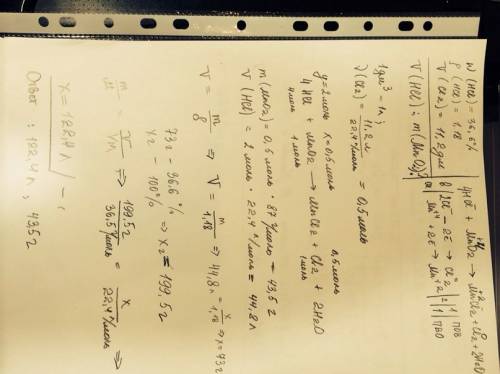 W (HCl) = 36,6%
ρ (HCl) = 1,18
V (Cl₂) = 11,2 дм³
V (HCl); m (MnO₂)?
4HCl + MnO₂ → MnCl₂ + Cl₂ + 2H₂O
2Cl⁻ - 2ē → Cl₂⁰ | 2 | 1 |
Mn⁺⁴ + 2ē → Mn⁺² | 2 | 1 |
1 дм³ = 1 л;
ν (Cl₂) = 11,2 л / 22,4 л/моль = 0,5 моль
y = 2 моль x = 0,5 моль 0,5 моль
4 HCl + MnO₂ → MnCl₂ + Cl₂ + 2H₂O
4 моль 1 моль 1 моль
m (MnO₂) = 0,5 моль · 87 г/моль = 43,5 г
V (HCl) = 2 моль · 22,4 л/моль = 44,8 л
V = m/ρ ⇒ V = m/1,18 ⇒ 44,8 л = x/1,18 ⇒ x = 73 г
73 г - 36,6 %
x г - 100% ⇒ x₂ = 199,5 г
m/M = V/Vm ⇒ 199,5 г / 36,5 г/моль = x / 22,4 л/моль ⇒
x = 122,4 л
Ответ : 122,4 л, 43,5 г